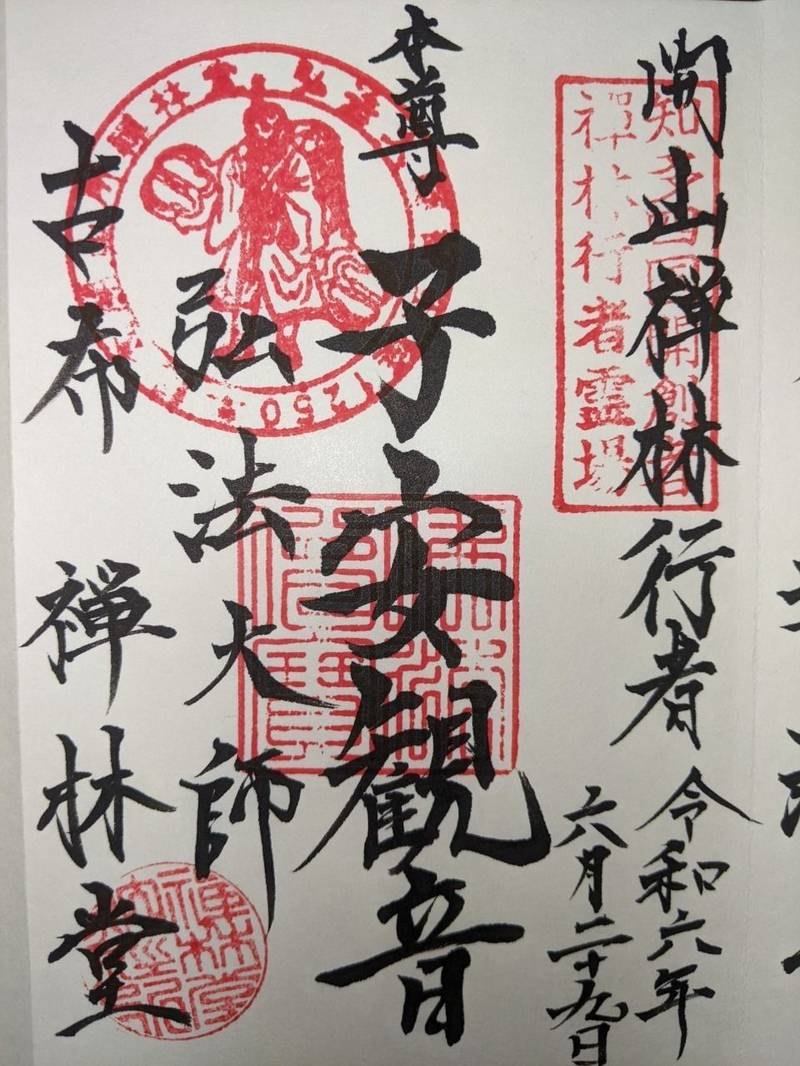 開山禅林行者
令和六年
六月二十九日
知多四国開創者
禅林行者霊場
本尊
子安観音
弘法大師
古布
禅林堂
1250